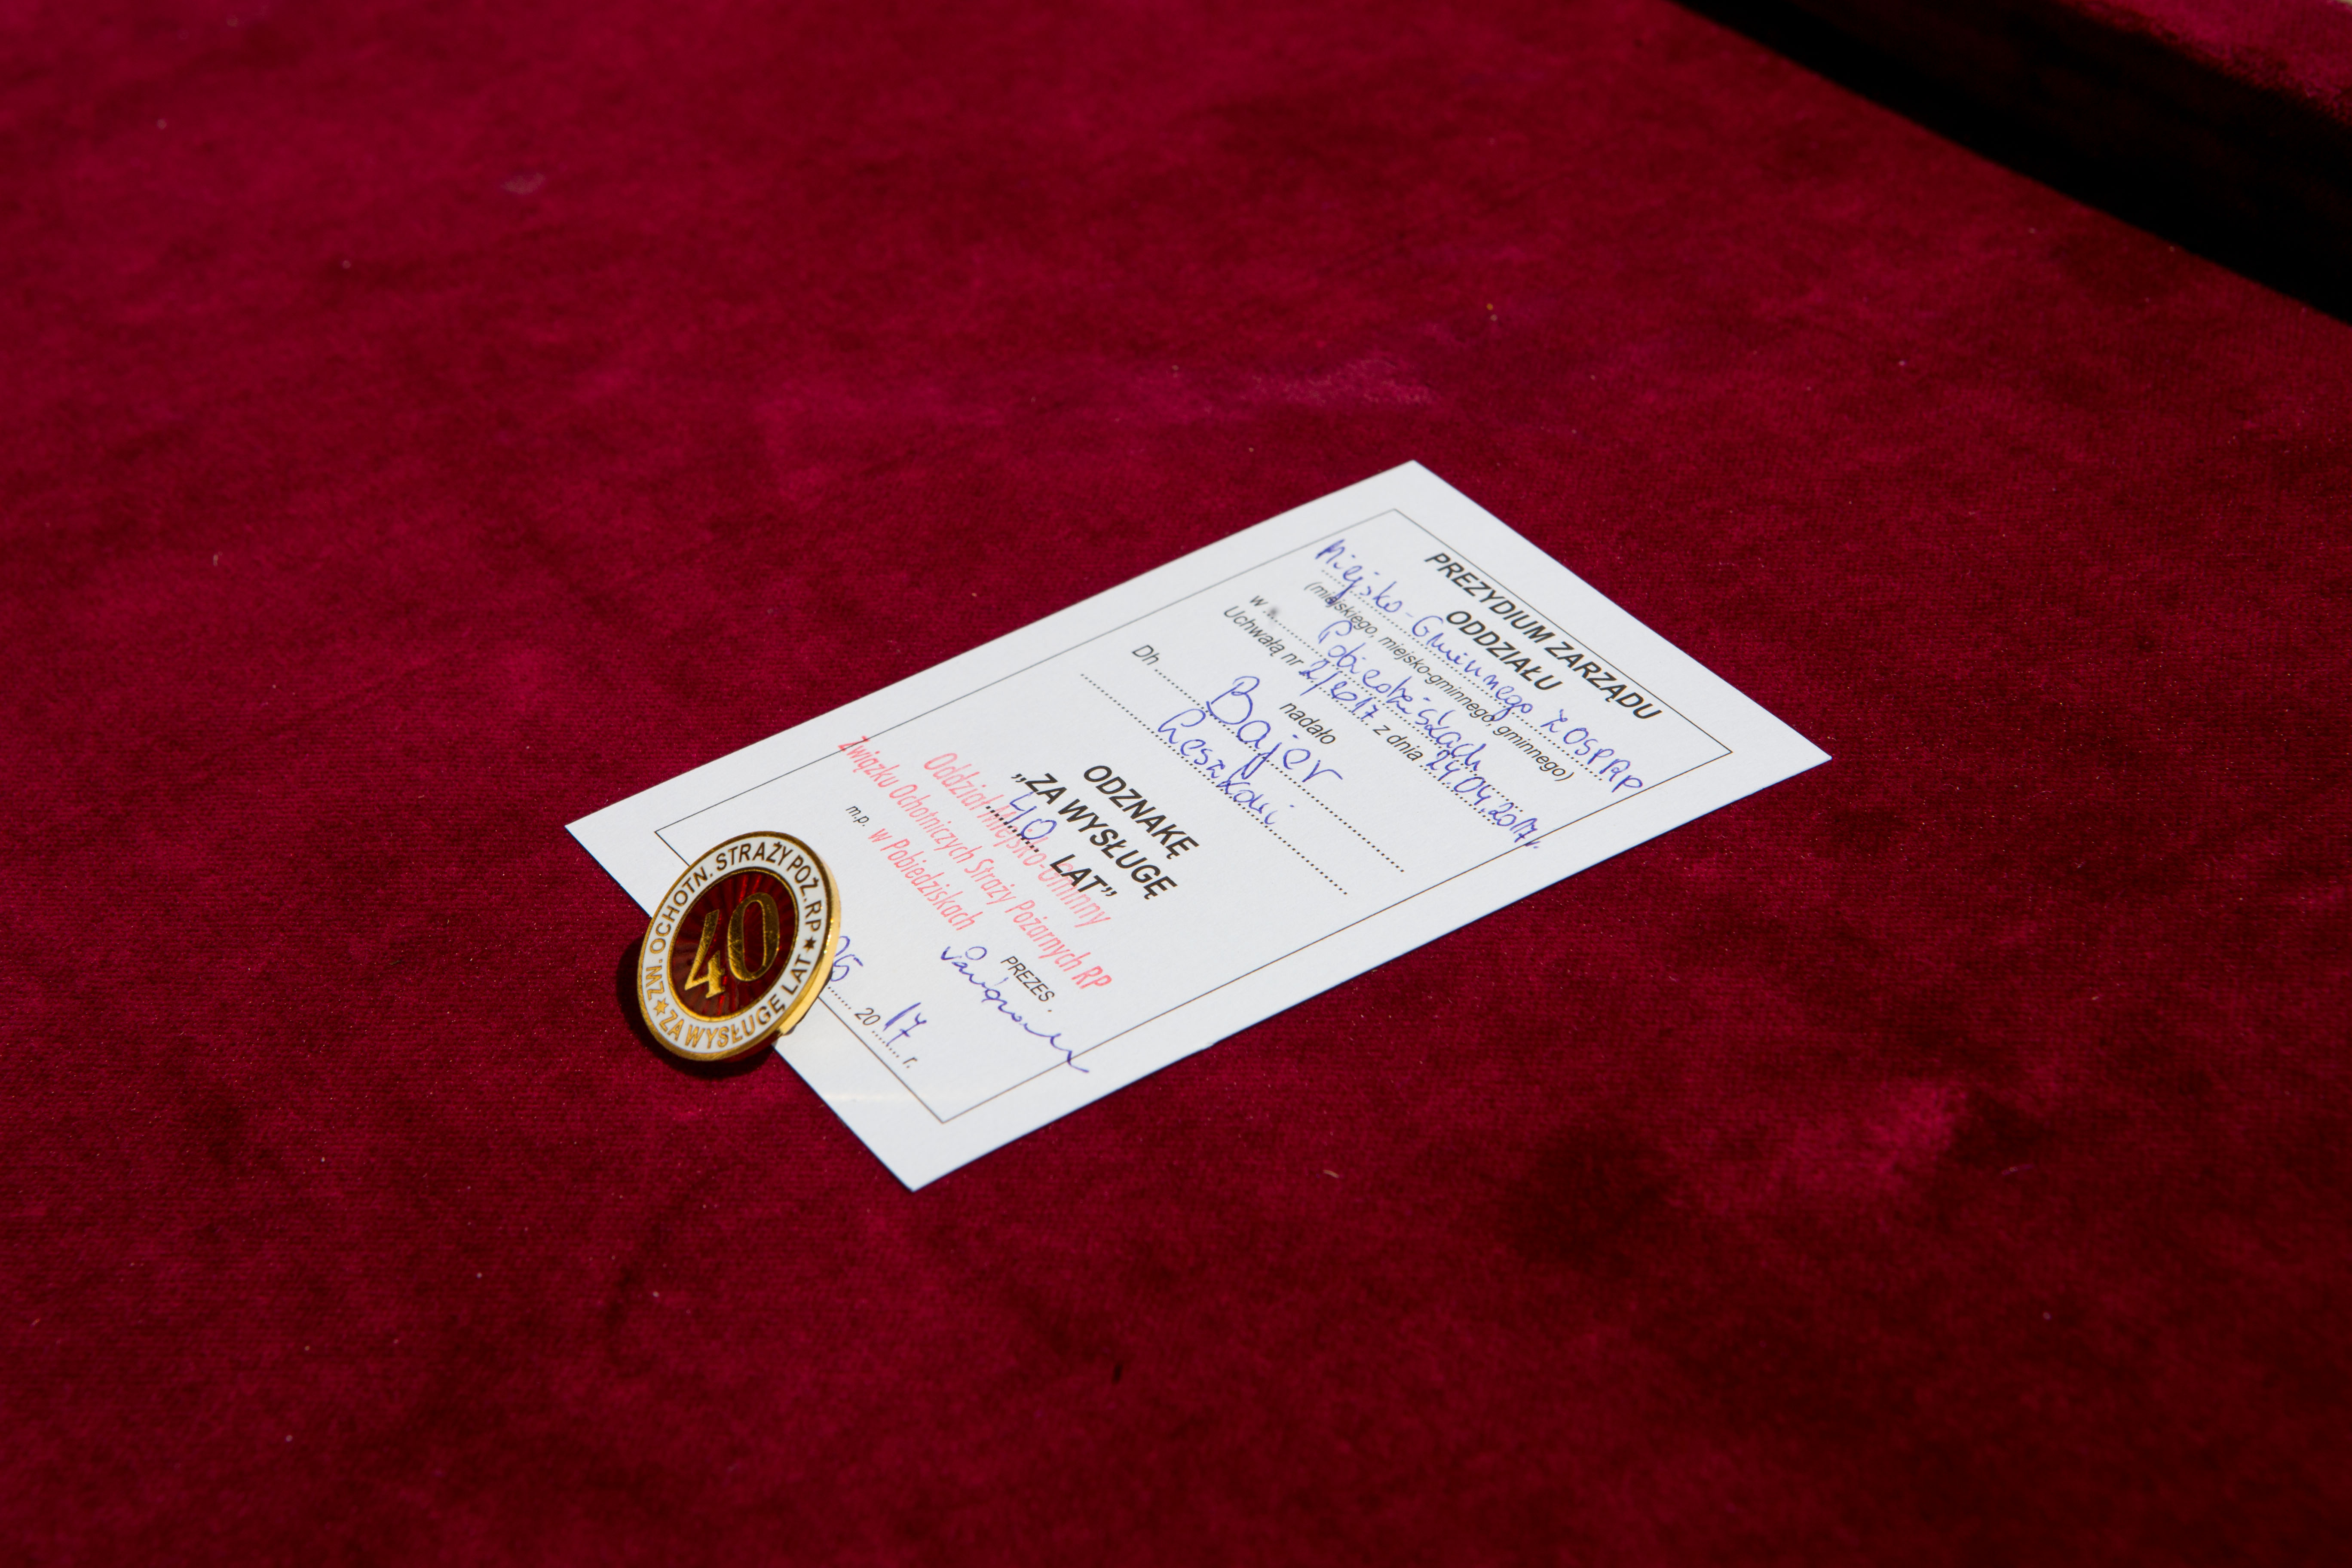 PREZYDIUM ZARZĄDU
ODDZIAŁU
Miejsko-Gminnego ZOSPRP
(miejskiego, miejsko-gminnego, gminnego)
w Pobiedziskach
Uchwałą nr 2/2017 z dnia 24.04.2017r.
nadało
Dh Bajer
Leszkowi
ODZNAKĘ
„ZA WYSŁUGĘ
40 LAT”
Oddział Miejsko-Gminny
Związku Ochotniczych Straży Pożarnych RP
m.p. w Pobiedziskach
PREZES
05 2017 r.
ZW. OCHOTN. STRAŻY POŻ. RP
ZA WYSŁUGĘ LAT
40